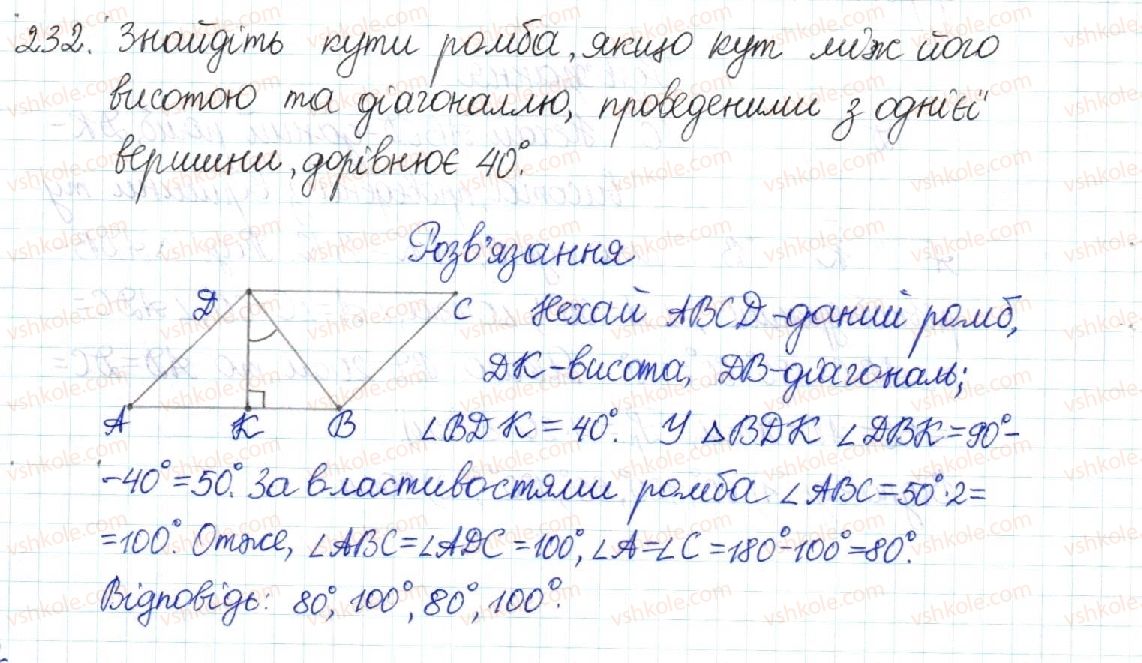 232. Знайдіть кути ромба, якщо кут між його
висотою та діагоналлю, проведеними з однієї
вершини, дорівнює 40°.
Розв'язання
D C Нехай ABCD - даний ромб,
DK - висота, DB - діагональ;
A K B ∠BDK = 40°. У △BDK ∠DBK = 90° -
- 40° = 50°. За властивостями ромба ∠ABC = 50° · 2 =
= 100°. Отже, ∠ABC = ∠ADC = 100°, ∠A = ∠C = 180° - 100° = 80°.
Відповідь: 80°, 100°, 80°, 100°.